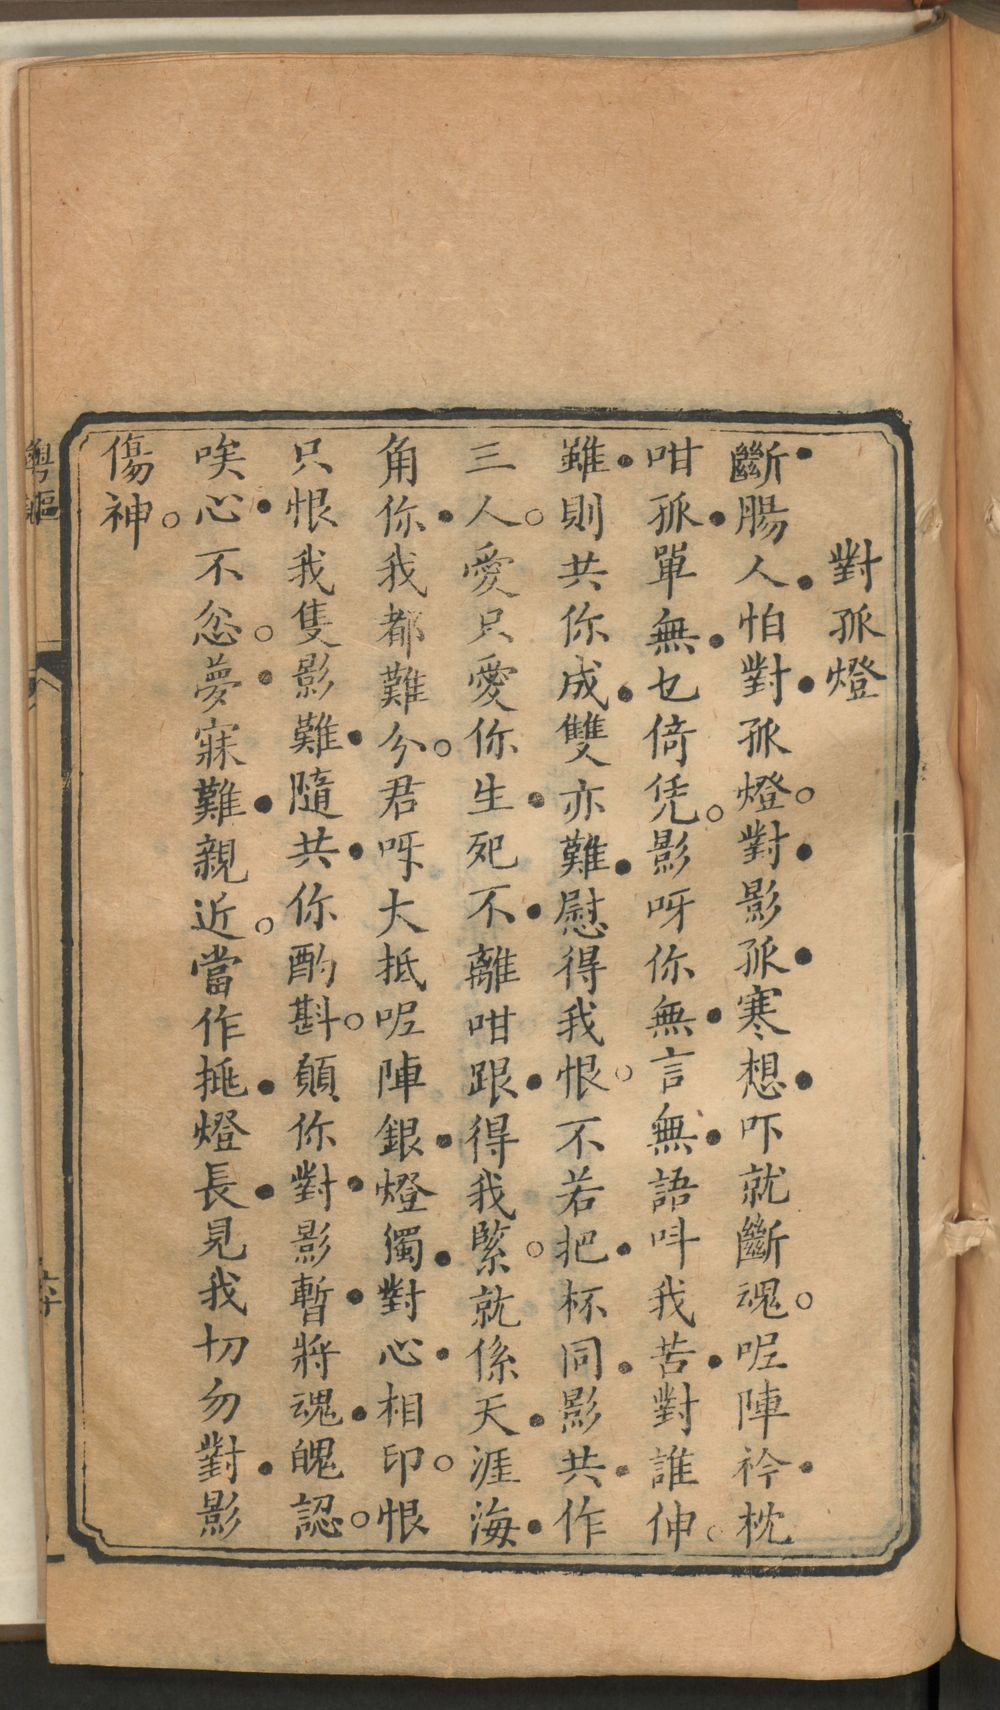 對孤燈
斷腸人怕對孤燈。對影孤寒想吓就斷魂。呢陣衿枕
咁孤單無乜倚凭。影呀你無言無語呌我苦對誰伸。
雖則共你成雙亦難慰得我恨。不若把杯同影共作
三人。愛只愛你生死不離咁跟得我緊。就係天涯海
角你我都難分。君呀大抵呢陣銀燈獨對心相印。恨
只恨我隻影難隨共你酌斟。願你對影暫將魂魄認。
唉心不忿。夢寐難親近。當作挑燈長見我切勿對影
傷神。
粵謳